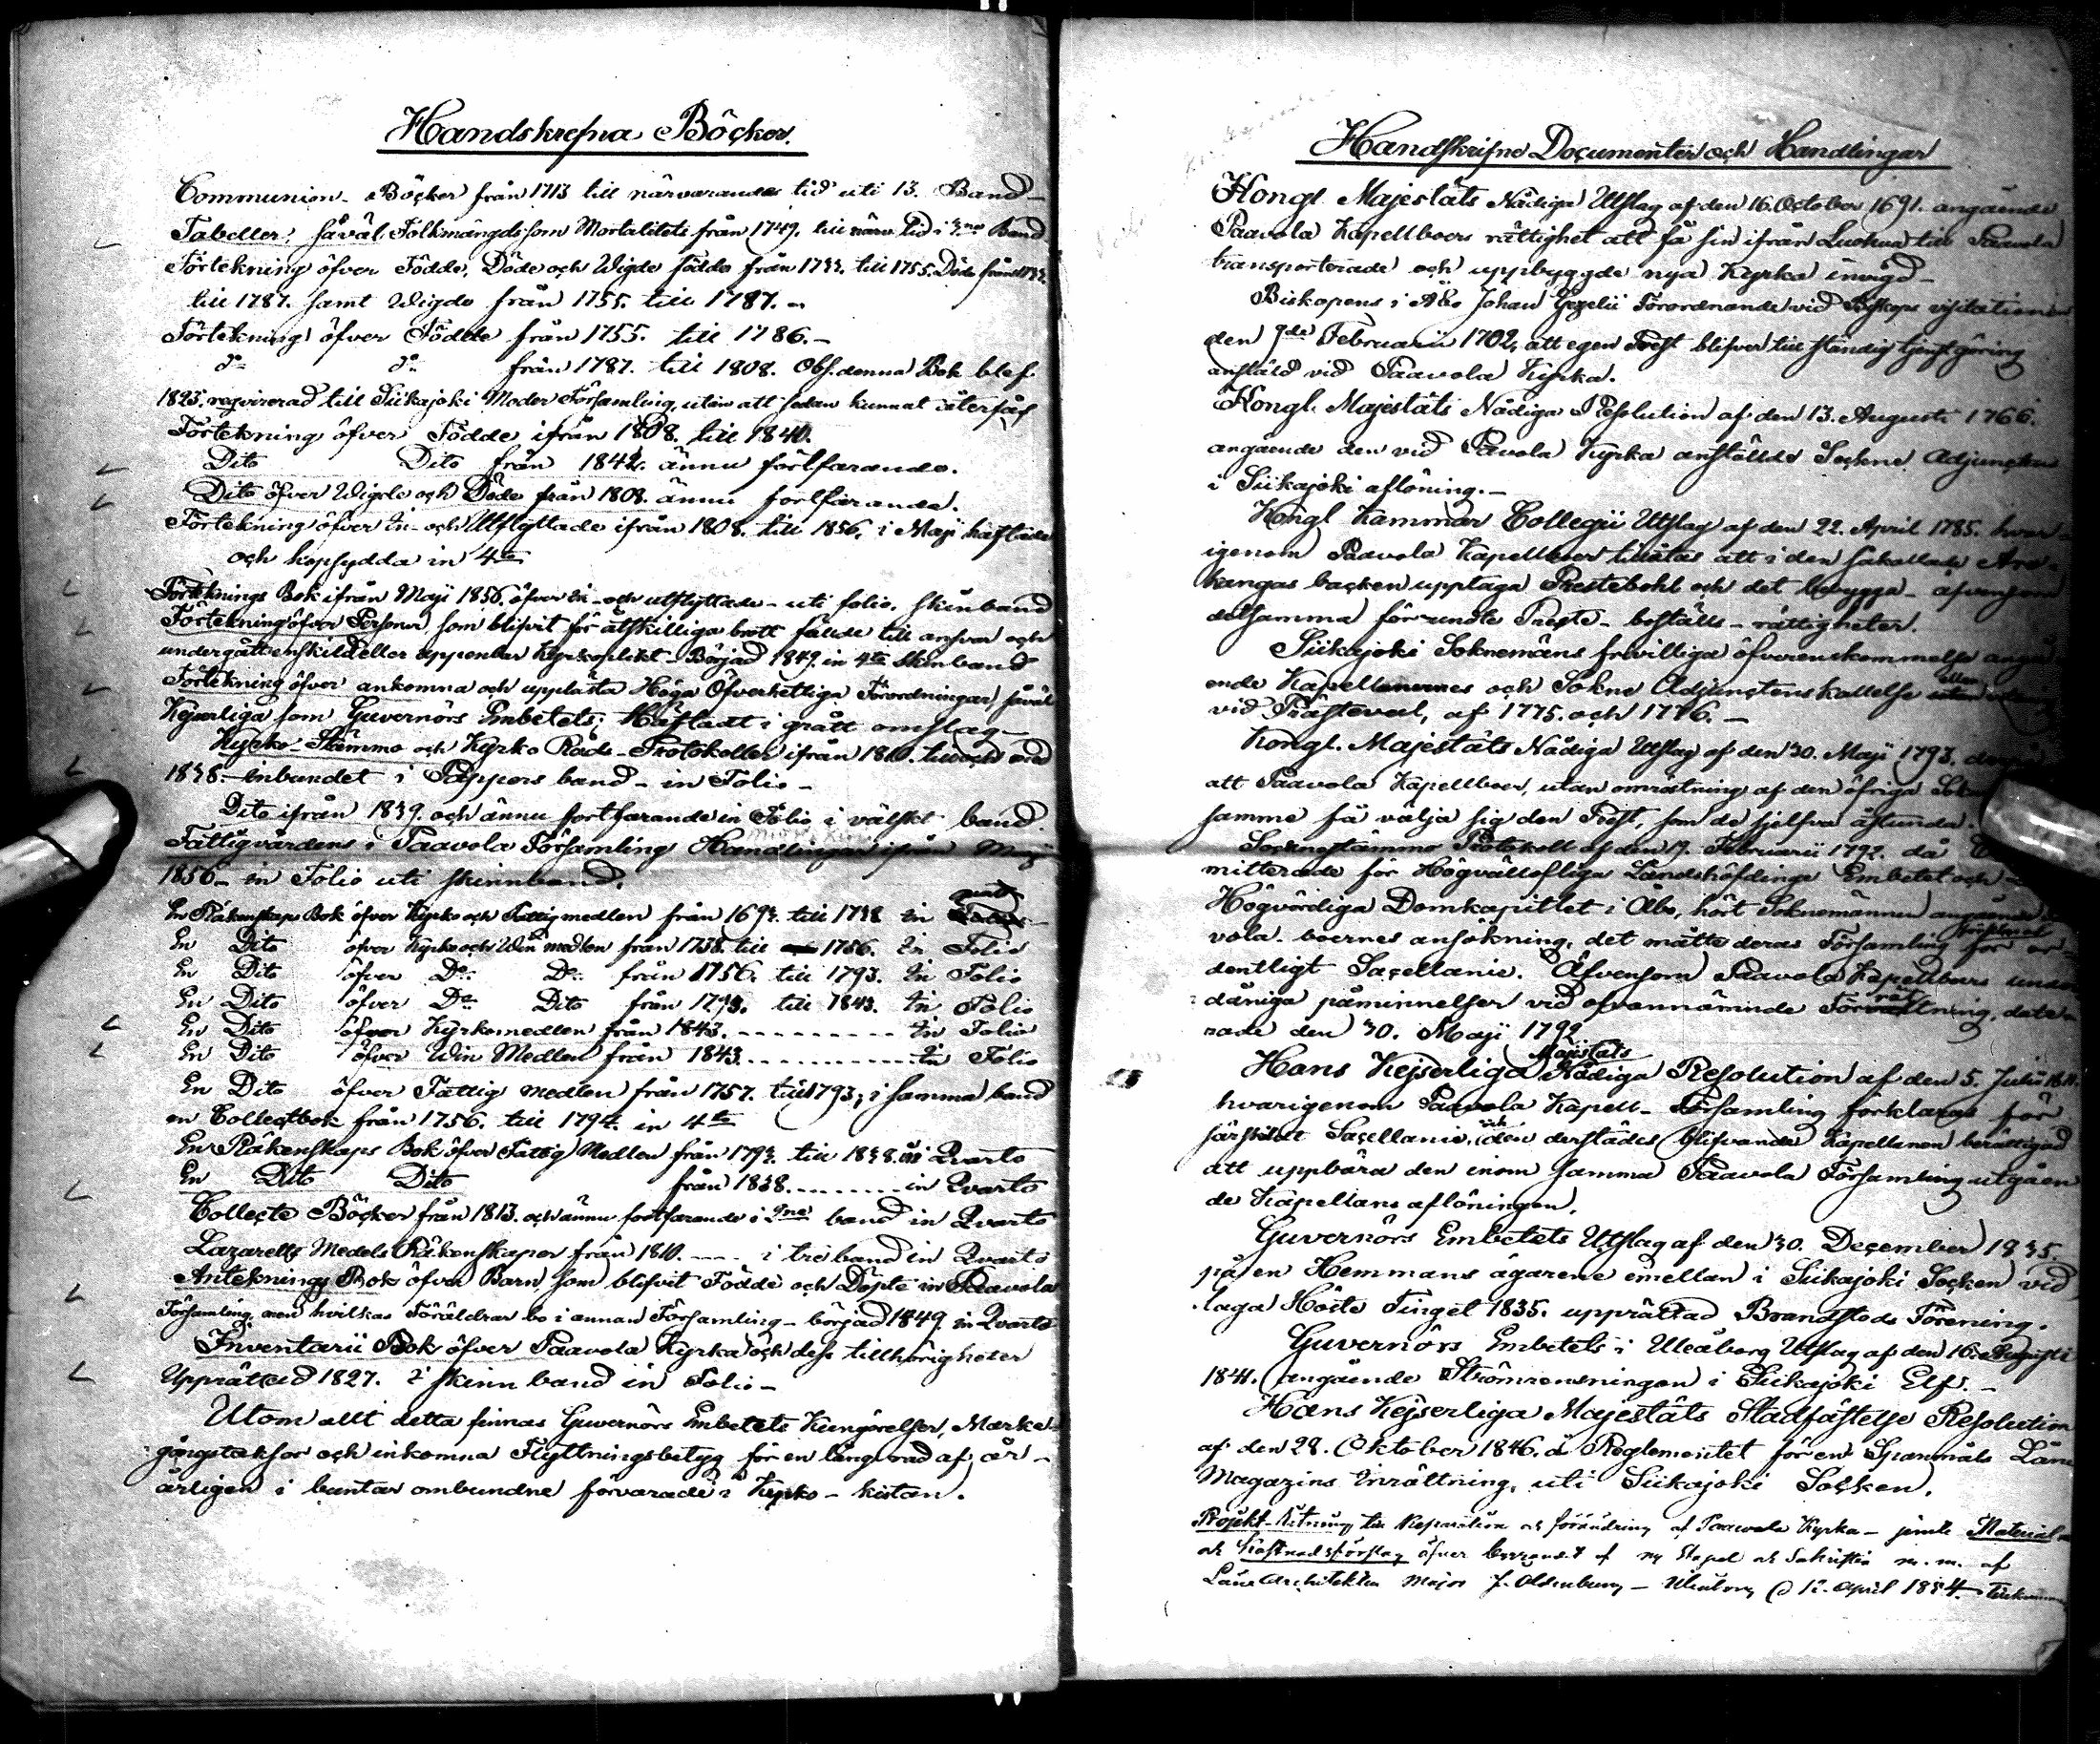 Handskrefna Böcker.
Communion-Böcker från 1713 till närvarande tid uti 13. Band-
Tabeller, såväl Folkmängds som Mortalitets från 1749. till närv. tid i Band
Förtekning öfver Födde, Döde och Wigde födde från 1733. till 1755. Döde från 1733.
till 1787. samt Wigde från 1755. till 1787.-
Förtekning öfver Födde från 1755. till 1786.-
do do från 1787. till 1808. Obs. denna Bok blef
1823. reqvirerad till Siikajoki Moder Församling, utan att sedan kunnat återfås
Förtekning öfver Födde ifrån 1808. till 1840.
Dito Dito från 1842. ännu fortfarande.
Dito öfver Wigde och Döde från 1808. ännu fortfarande.
Förtekning öfver In- och Utflyttade ifrån 1808. till 1856. i Maji häftade
och hopsydda in 4to
Förteknings Bok ifrån Maji 1856. öfver in- och utflyttade - uti folio. skinband
Förtekning öfver Personer, som blifvit för åtskilliga brott fällde till ansvar och
undergått enskild eller uppenbar kyrkoplikt - Börjad 1849. in 4to Skinband
Förtekning öfver ankomna och upplästa Höga Öfverhetliga Förordningar, såväl
Kejserliga som Guvernörs Embetets; Häftadt i grått omslag-
Kyrko-Stämmo och Kyrko Råds-Protokoller ifrån 1810. till och med
1838.- inbundet i Pappers band - in Folio-
Dito ifrån 1839. och ännu fortfarande in Folio i välskt band.
Fattigvårdens i Paavola Församling Handlingar ifrån Maji
1856- in Folio uti skinnband.
En Räkenskaps Bok öfver Kyrko och Fattig medlen från 1693. till 1738 in
En Dito öfver Kyrko och Win medlen från 1738. till 1756. in Folio
En Dito öfver Do Do från 1756. till 1793. in Folio
En Dito öfver Do Dito från 1793. till 1843. in Folio
En Dito öfver Kyrkomedlen från 1843. - - - - - - - - - - in Folio
En Dito öfver Win Medlen från 1843. - - - - - - - - - - in Folio
En Dito öfver Fattig medlen från 1757. till 1793; i samma band
en Collectbok från 1756. till 1794. in 4to
En Räkenskaps Bok öfver Fattig Medlen från 1793. till 1838. in Qvarto
En Dito Dito från 1838. - - - - - - in Qvarto
Collecte Böcker från 1813. och ännu fortfarande i 2ne band in Qvarto
Lazaretts Medels Räkenskaper från 1810. - - - - i tre band in Qvarto
Anteknings Bok öfver Barn, som blifvit Födde och Döpte in Paavola
Församling, men hvilkas Föräldrar bo i annan Församling - börjad 1849. in Qvarto
Inventarii Bok öfver Paavola Kyrka och dess tillhörigheter
Upprättad 1827. i skinn band in Folio-
Utom allt detta finnas Guvernörs Embetets Kungörelser, Marke-
gångstaksor och inkomna Flyttningsbetyg för en lång rad af år-
årligen i buntar ombundne förvarade i Kyrko-kistan.
Handskrifne Documenter och Handlingar
Kongl. Majestäts Nådiga Utslag af den 16. October 1691. angående
Paavola Kapellboers rättighet att få sin ifrån Luohua till Paavola
transporterade och uppbyggde nya Kyrka invigd-
Biskopens i Åbo Johan Gezelii Förordnande vid Biskops visitationen
den Februarii 1702, att egen Prest blifver till ständig tjenstgöring
anstäld vid Paavola Kyrka.
Kongl. Majestäts Nådiga Resolution af den 13. Augusti 1766.
angående den vid Pavola Kyrka anstälde Sockne Adjuncten
i Siikajoki aflöning.-
Kongl Kammar Collegii Utslag af den 22. April 1785. hvar-
igenom Paavola Kapellboer tillåtas att i den såkallade Aro-
kangas backen upptaga Prestebohl och det bebygga - äfvensom
detsamma förundte Preste-boställs-rättigheter.
Siikajoki Soknemäns frivilliga öfverenskommelse angå
ende Kapellanernes och Sokne Adjunctens kallelse
vid Prästeval, af 1775. och 1776.-
Kongl. Majestäts Nådiga Utslag af den 30. Maji 1793.
att Paavola Kapellboer, utan omröstning af den öfriga
samme få välja sig den Prest, som de sjelfva åstunda.
Sockenstämmo Protokoll af den 19. Februarii 1792. då
mitterade för Högvällofliga Landshöfdinge Embetet och
Högvördiga Domkapitlet i Åbo, hört Soknemännen angående
vola-boernes ansökning, det måtte deras Församling för or-
dentligt Sacellanie. Äfvensom Paavola Kapellboers under
dåniga påminnelser vid ofvannämnde Förrättning, date-
rade den 30. Maji 1792
Hans Kejserliga Majestäts Nådiga Resolution af den 5. Julii
hvarigenom Paavola Kapell-Församling förklaras för
särskildt Sacellanie, och den derstädes blifvande Kapellanen berättigad
att uppbära den inom samma Paavola Församling utgåen
de Kapellans aflöningen.
Guvernörs Embetets Utslag af den 30. December 1835.
på en Hemmans ägarene emellan i Siikajoki Socken vid
laga Höste Tinget 1835. upprättad Brandstods Förening.
Guvernörs Embetets i Uleåborg Utslag af den 16. Augusti
1841. angående Strömrensningen i Siikajoki Elf.-
Hans Kejserliga Majestäts Stadfästelse Resolution
af den 28. Oktober 1846. å Reglementet för en Spanmåls Låne
Magazins Inrättning, uti Siikajoki Socken.
Projekt-Ritning till Reparation och förändring af Paavola Kyrka - jemte Material
och Kostnadsförslag öfver byggandet af ny Stapel och Sakristia m.m. af
Läns Architekten Major J. Oldenburg - Uleåborg d 12. April 1884.